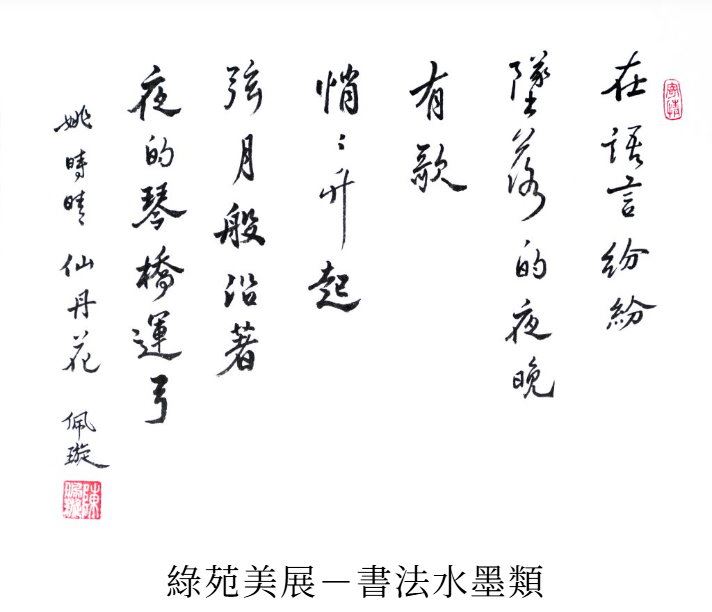 在語言紛紛
墜落的夜晚
有歌
悄悄升起
弦月般沿著
夜的琴橋運弓
姚時晴 仙丹花 佩璇
綠苑美展－書法水墨類